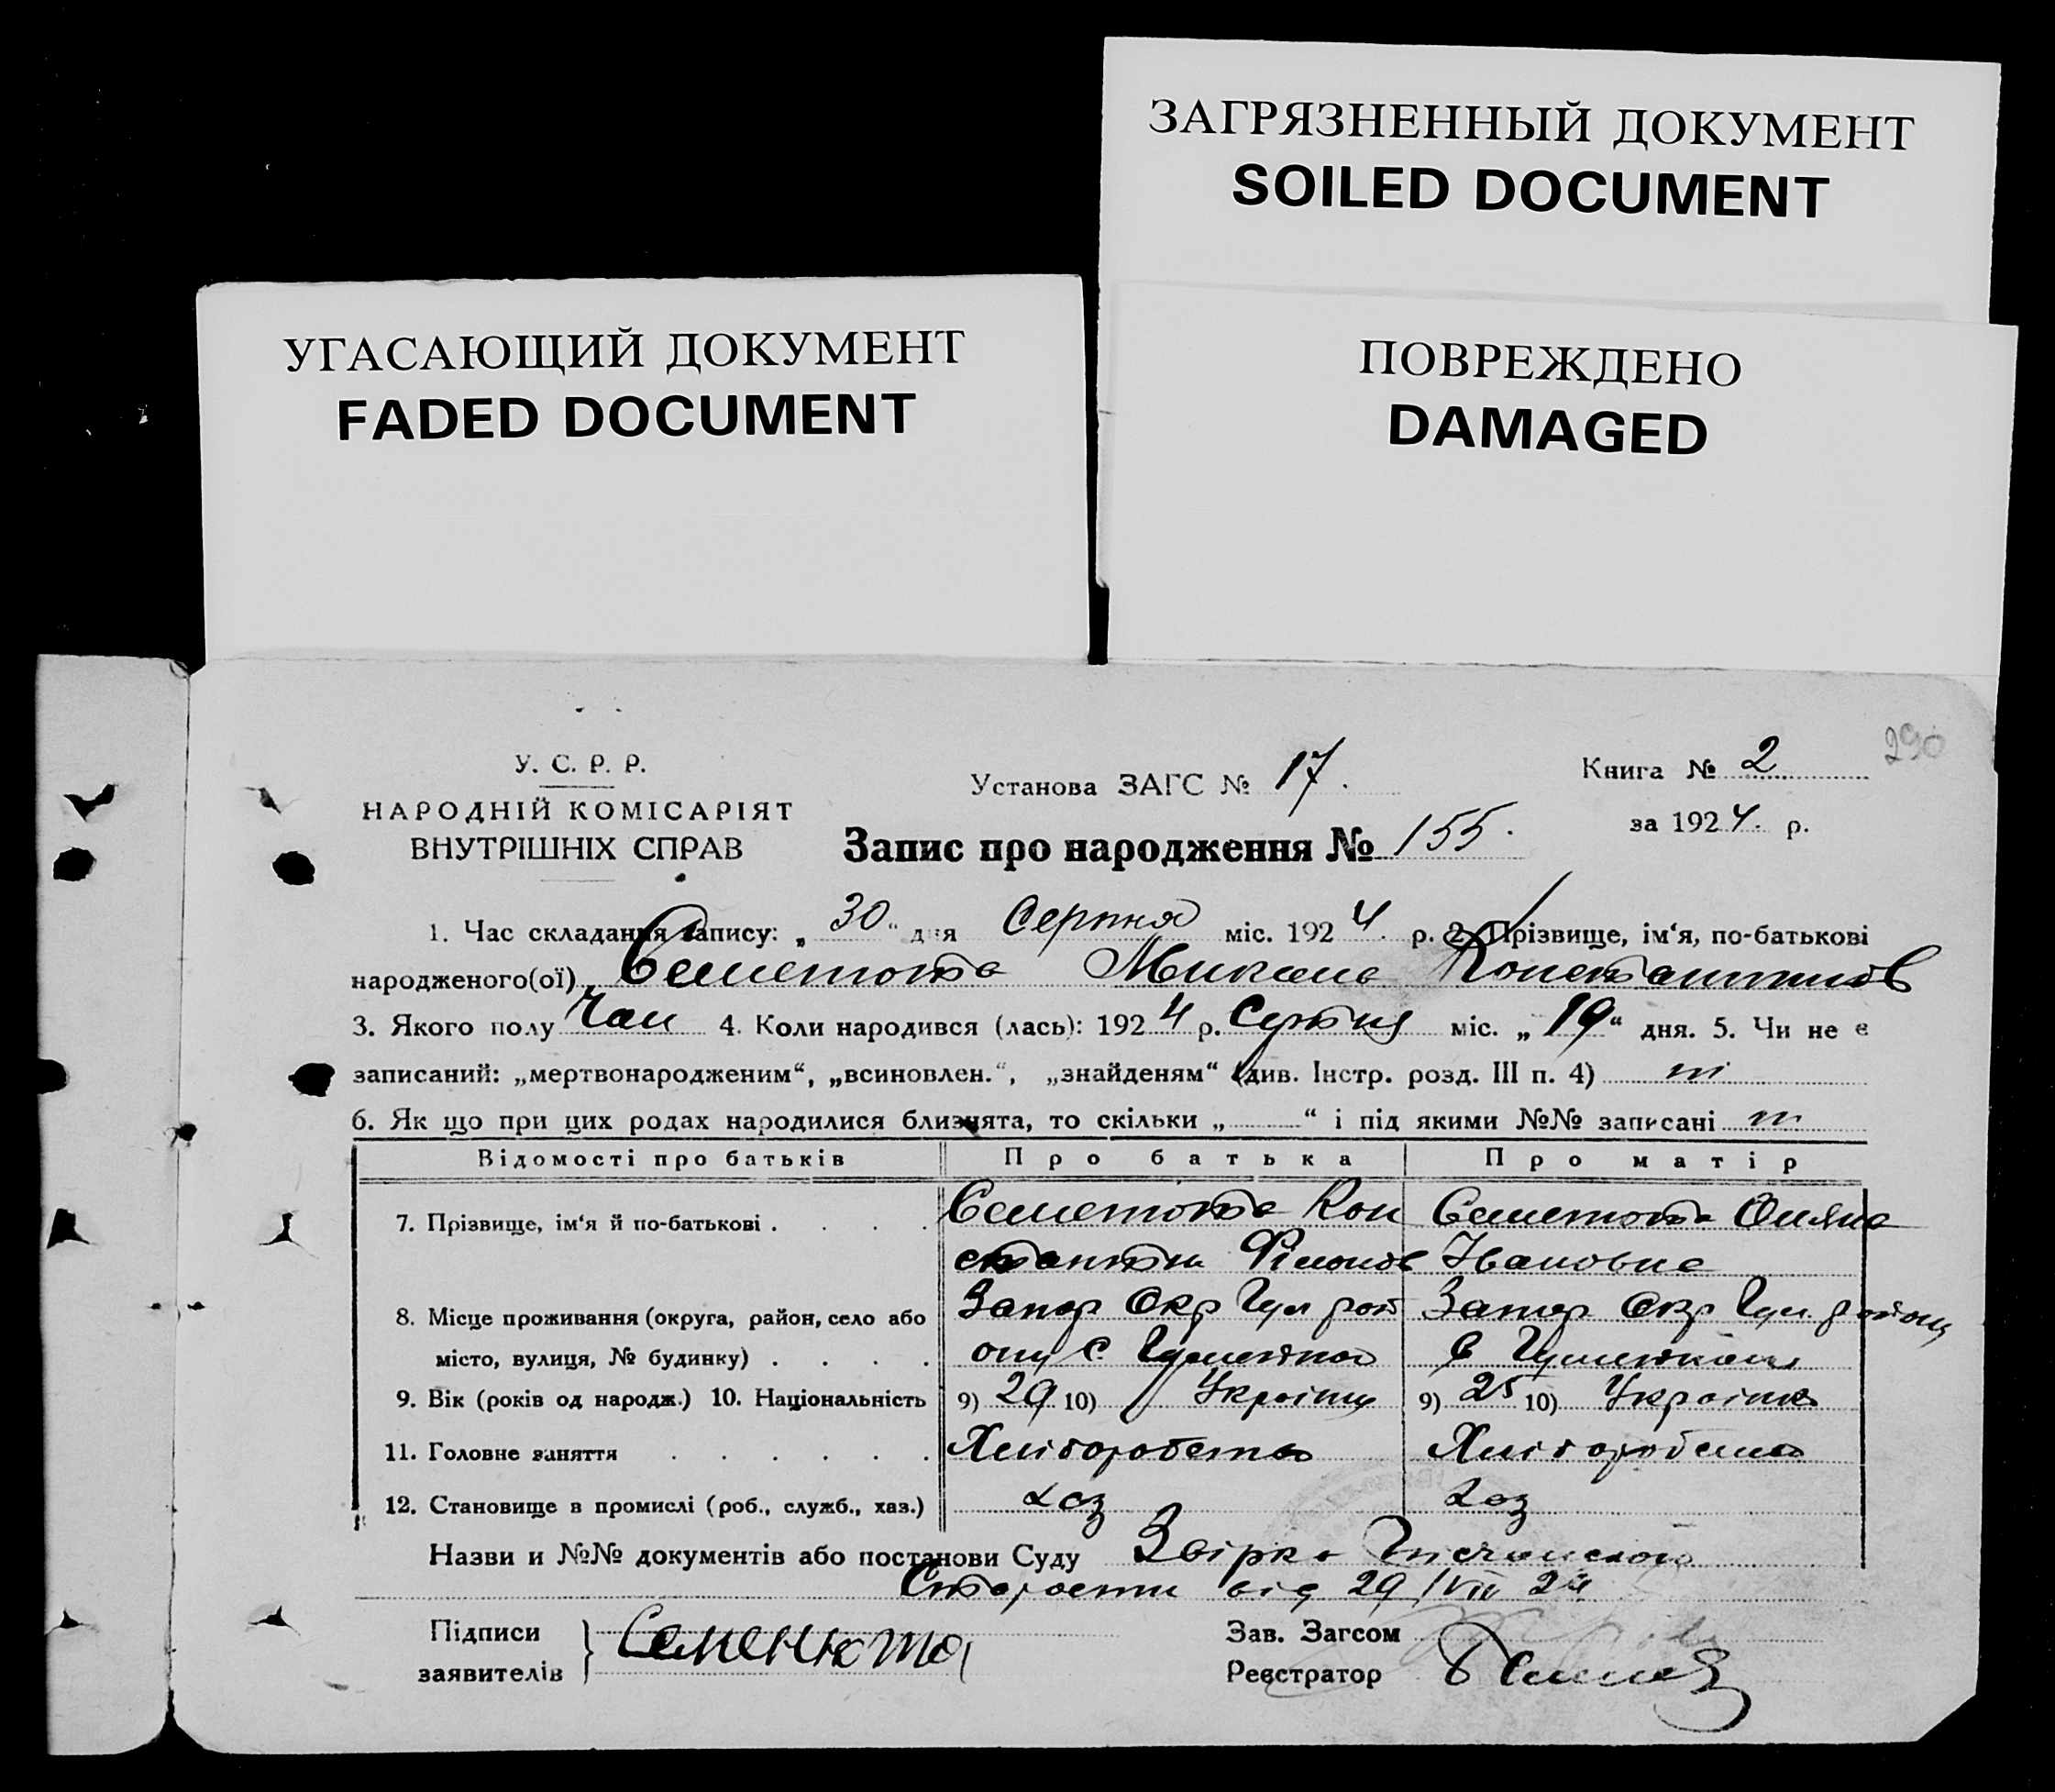 ЗАГРЯЗНЕННЫЙ ДОКУМЕНТ
SOILED DOCUMENT
УГАСАЮЩИЙ ДОКУМЕНТ
FADED DOCUMENT
ПОВРЕЖДЕНО
DAMAGED
290
У. С. Р. Р.
НАРОДНІЙ КОМІСАРІЯТ
ВНУТРІШНІХ СПРАВ
Установа ЗАГС № 17.
Книга № 2
за 1924. р.
Запис про народження № 155.
1. Час складання запису: „30“ дня Серпня міс. 1924. р. 2. Прізвище, ім‘я, по-батькові
народженого(ої) Семенюта Микола Константинов
3. Якого полу Чол 4. Коли народився (лась): 1924 р. Серпня міс. „19“ дня. 5. Чи не є
записаний: „мертвонародженим“, „всиновлен.“, „знайденям“ (див. Інстр. розд. III п. 4) ні
6. Як що при цих родах народилися близнята, то скільки „ “ і під якими №№ записані ні
Відомості про батьків Про батька Про матір
7. Прізвище, ім‘я й по-батькові . . . . Семенюта Кон Семенюта
стантин Івановна
8. Місце проживання (округа, район, село або Запор Окр Гул рай Запор Окр Гул району
місто, вулиця, № будинку) . . . . ону с.
9. Вік (років од народж.) 10. Національність 9) 29 10) Україн 9) 25 10) Українка
11. Головне заняття . . . . . . Хліборобство Хліборобство
12. Становище в промислі (роб., служб., хаз.) хаз хаз
Назви и №№ документів або постанови Суду
від 29/VIII 24
Підписи
заявителів
Семенюта
Зав. Загсом
Реєстратор